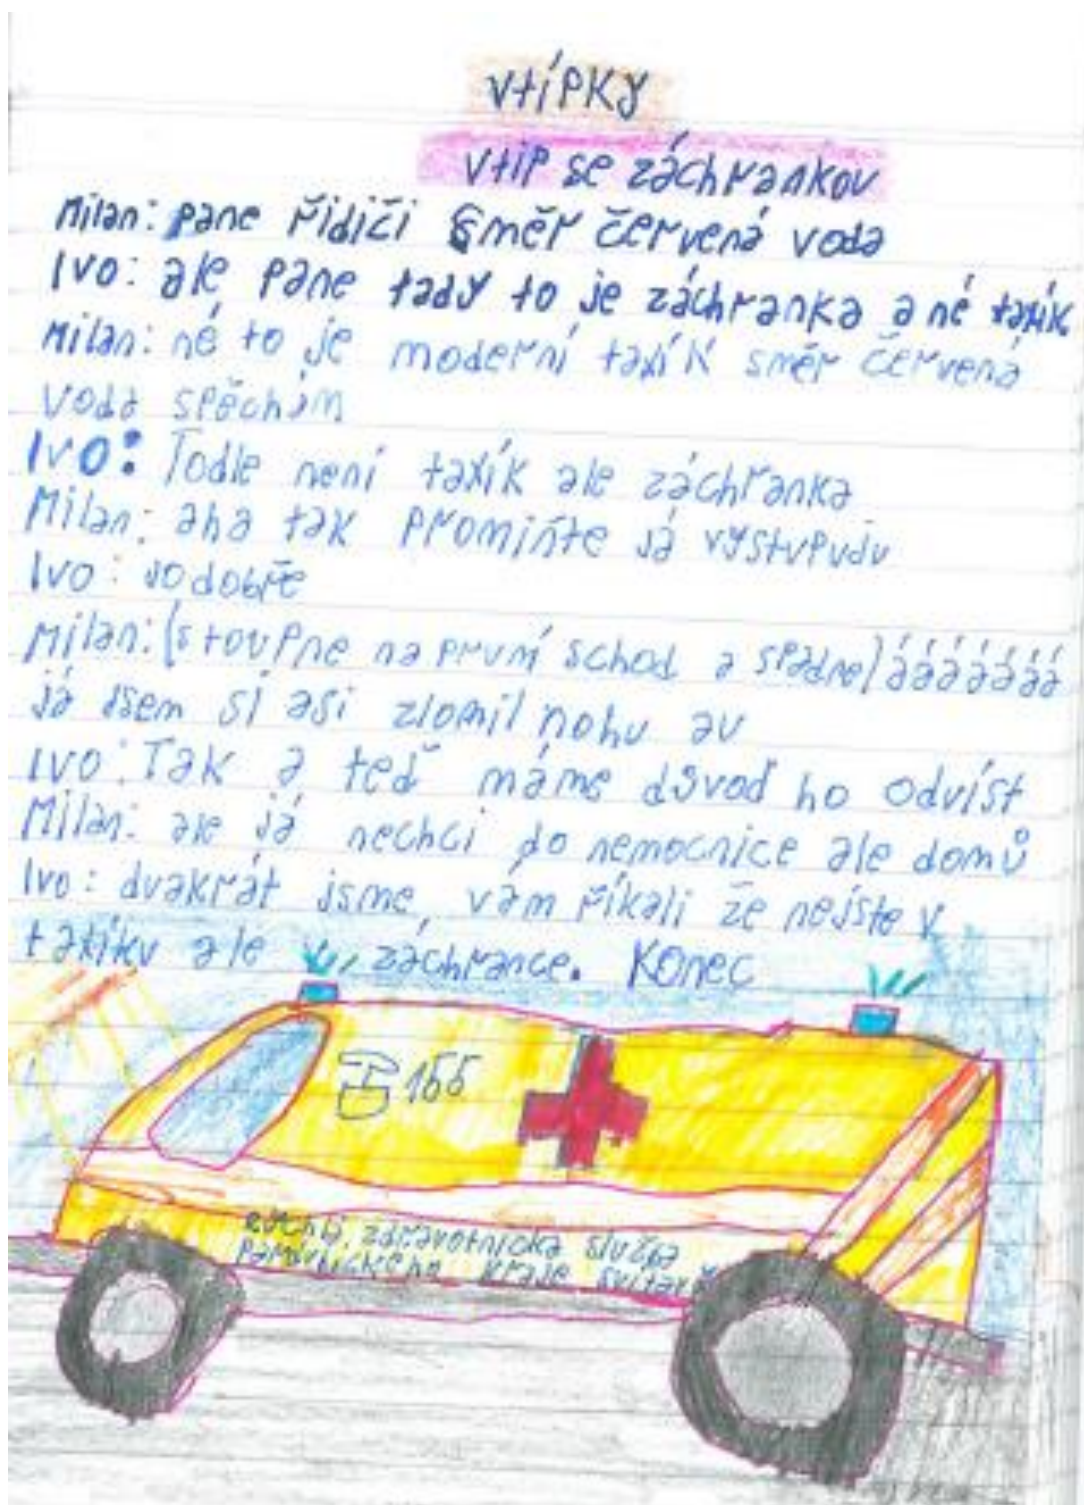 vtípky
vtip se záchrankou
Milan: pane řidiči směr červená voda
Ivo: ale pane tady to je záchranka a né taxík
Milan: né to je moderní taxík směr červená
voda spěchám
Ivo: Todle není taxík ale záchranka
Milan: aha tak promiňte já vystupudu
Ivo: jo dobře
Milan: (stoupne na první schod a spadne) ááááááá
já jsem si asi zlomil nohu au
Ivo: Tak a teď máme důvod ho odvíst
Milan: ale já nechci do nemocnice ale domů
Ivo: dvakrát jsme vám říkali že nejste v
taxíku ale záchrance. Konec
155
zdravotnicka služba
kraje